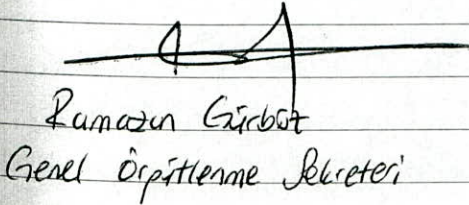 Ramazan Gürbüz
Genel Örgütlenme Sekreteri